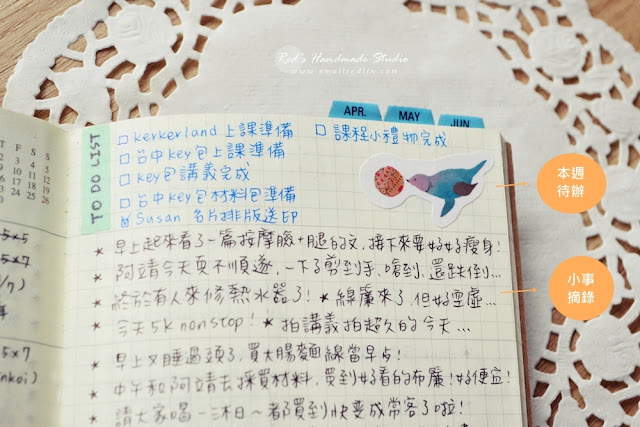 Red's Handmade Studio
www.smallredlin.com
APR. MAY JUN.
TO DO LIST
□ kerkerland 上課準備
□ 課程小禮物完成
□ 台中key包上課準備
□ key包講義完成
□ 台中key包材料包準備
Susan 名片排版送印
本週
待辦
★ 早上起來看了一篇按摩臉+腿的文,接下來要好好瘦身!
★ 阿靖今天頁不順遂,一下子剪到手、嗆到、還跌倒...
★ 終於有人來修熱水器了! ★ 線簾來了,但好空虛...
小事
摘錄
★ 今天5k nonstop! ★ 拍講義拍超久的今天...
★ 早上又睡過頭了,買大腸麵線當早点!
★ 中午和阿靖去採買材料,買到好看的布簾!好便宜!
★ 請大家喝一沐日~都買到快變成常客了啦!
T F S S
2 3 4 5
9 10 11 12
16 17 18 19
23 24 25 26
5x5
5x7
5x7
nkoi)